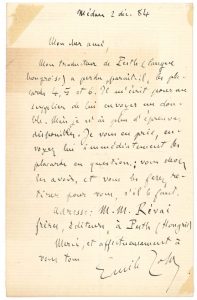 Médan 2 déc. 84
Mon cher ami,
Mon traducteur de Pesth (langue
hongroise) a perdu, paraît-il, les pla-
cards 4, 5 et 6. Il m'écrit pour me
supplier de lui envoyer un dou-
ble. Mais je n'ai plus d'épreuves
disponibles. Je vous en prie, en-
voyez lui immédiatement les
placards en question ; vous devez
les avoir, et vous les ferez re-
tirer pour vous, s'il le faut.
Adresse : M. M. Révai
frères, éditeurs, à Pesth (Hongrie)
Merci, et affectueusement à
vous tous.
Emile Zola